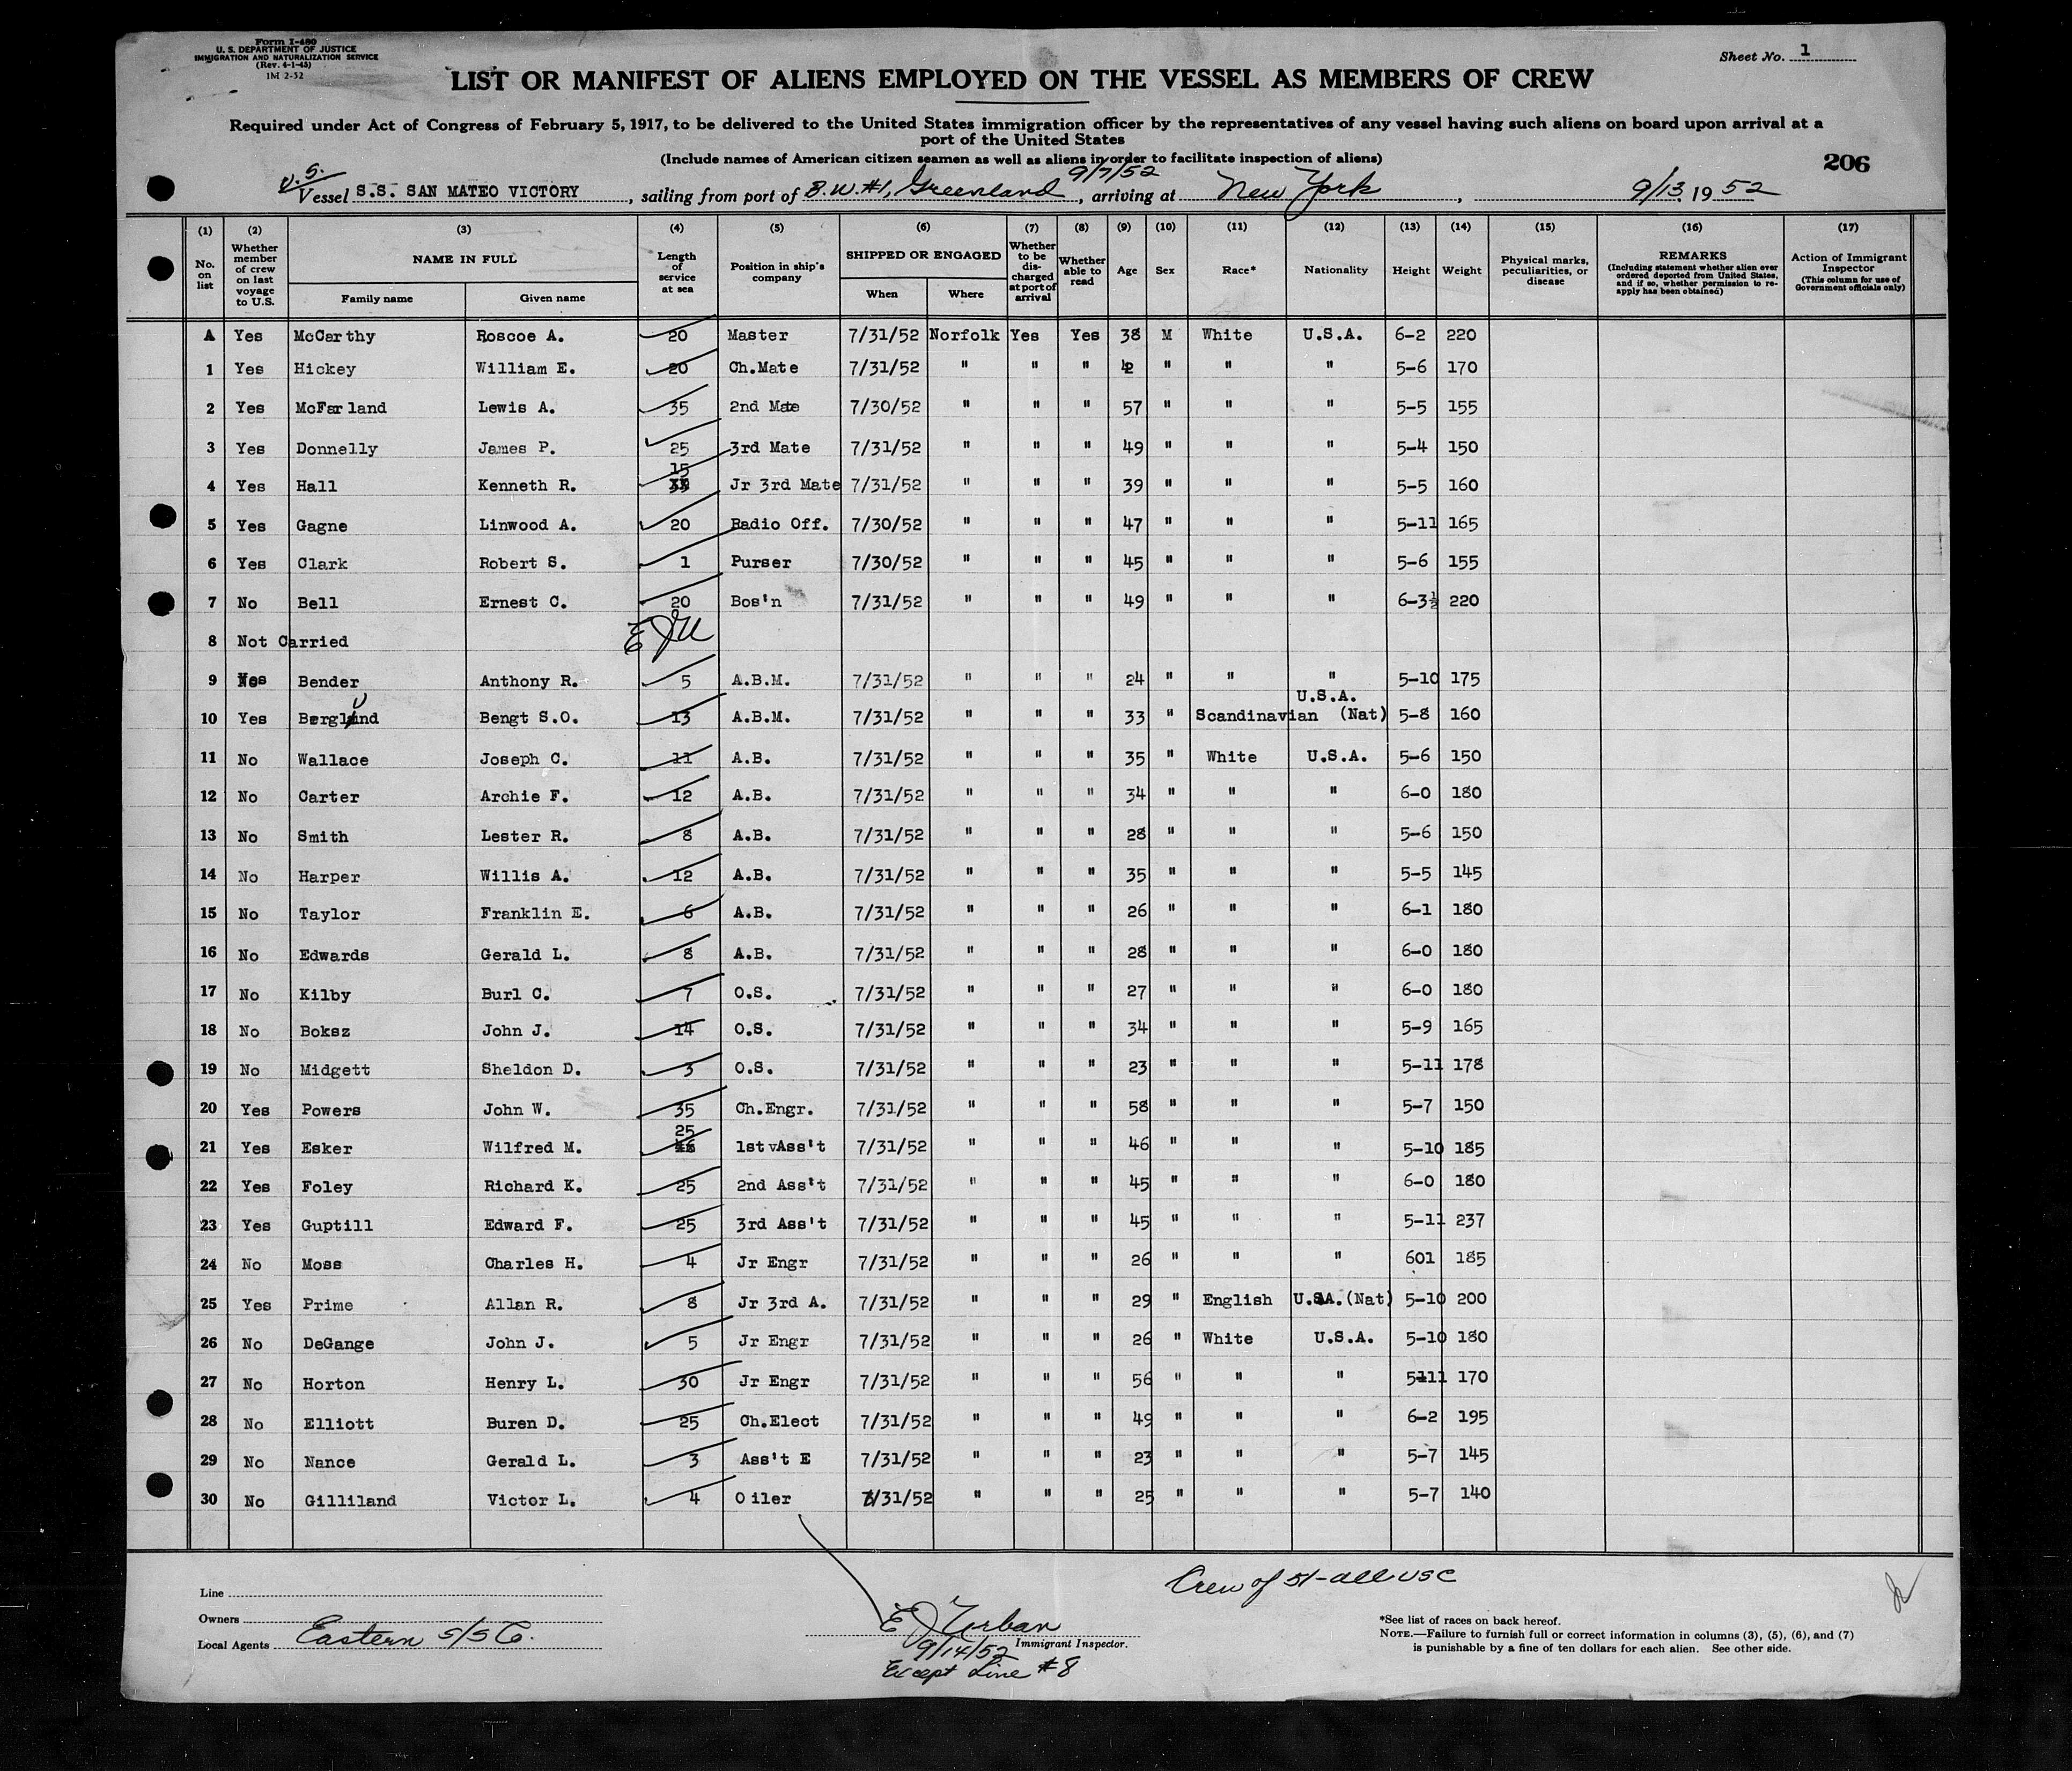 Form I-480
U. S. DEPARTMENT OF JUSTICE
IMMIGRATION AND NATURALIZATION SERVICE
(Rev. 4-1-45)
1M 2-52
Sheet No. 1
LIST OR MANIFEST OF ALIENS EMPLOYED ON THE VESSEL AS MEMBERS OF CREW
Required under Act of Congress of February 5, 1917, to be delivered to the United States immigration officer by the representatives of any vessel having such aliens on board upon arrival at a
port of the United States
(Include names of American citizen seamen as well as aliens in order to facilitate inspection of aliens)
206
U.S. 9/7/52
Vessel S.S. SAN MATEO VICTORY, sailing from port of B.W.#1, Greenland, arriving at New York, 9/13 1952
(1) No. on list (2) Whether member of crew on last voyage to U.S. (3) NAME IN FULL Family name Given name (4) Length of service at sea (5) Position in ship's company (6) SHIPPED OR ENGAGED When Where (7) Whether to be discharged at port of arrival (8) Whether able to read (9) Age (10) Sex (11) Race* (12) Nationality (13) Height (14) Weight (15) Physical marks, peculiarities, or disease (16) REMARKS (Including statement whether alien ever ordered deported from United States, and if so, whether permission to re-apply has been obtained) (17) Action of Immigrant Inspector (This column for use of Government officials only)
A Yes McCarthy Roscoe A. 20 Master 7/31/52 Norfolk Yes Yes 38 M White U.S.A. 6-2 220
1 Yes Hickey William E. 20 Ch.Mate 7/31/52 " " " 42 " " " 5-6 170
2 Yes McFarland Lewis A. 35 2nd Mate 7/30/52 " " " 57 " " " 5-5 155
3 Yes Donnelly James P. 25 3rd Mate 7/31/52 " " " 49 " " " 5-4 150
4 Yes Hall Kenneth R. 15 Jr 3rd Mate 7/31/52 " " " 39 " " " 5-5 160
5 Yes Gagne Linwood A. 20 Radio Off. 7/30/52 " " " 47 " " " 5-11 165
6 Yes Clark Robert S. 1 Purser 7/30/52 " " " 45 " " " 5-6 155
7 No Bell Ernest C. 20 Bos'n 7/31/52 " " " 49 " " " 6-3½ 220
8 Not Carried EJU
9 Yes Bender Anthony R. 5 A.B.M. 7/31/52 " " " 24 " " " 5-10 175
10 Yes Berglund Bengt S.O. 13 A.B.M. 7/31/52 " " " 33 " Scandinavian U.S.A. (Nat) 5-8 160
11 No Wallace Joseph C. 11 A.B. 7/31/52 " " " 35 " White U.S.A. 5-6 150
12 No Carter Archie F. 12 A.B. 7/31/52 " " " 34 " " " 6-0 180
13 No Smith Lester R. 8 A.B. 7/31/52 " " " 28 " " " 5-6 150
14 No Harper Willis A. 12 A.B. 7/31/52 " " " 35 " " " 5-5 145
15 No Taylor Franklin E. 6 A.B. 7/31/52 " " " 26 " " " 6-1 180
16 No Edwards Gerald L. 8 A.B. 7/31/52 " " " 28 " " " 6-0 180
17 No Kilby Burl C. 7 O.S. 7/31/52 " " " 27 " " " 6-0 180
18 No Boksz John J. 14 O.S. 7/31/52 " " " 34 " " " 5-9 165
19 No Midgett Sheldon D. 3 O.S. 7/31/52 " " " 23 " " " 5-11 178
20 Yes Powers John W. 35 Ch.Engr. 7/31/52 " " " 58 " " " 5-7 150
21 Yes Esker Wilfred M. 25 1st vAss't 7/31/52 " " " 46 " " " 5-10 185
22 Yes Foley Richard K. 25 2nd Ass't 7/31/52 " " " 45 " " " 6-0 180
23 Yes Guptill Edward F. 25 3rd Ass't 7/31/52 " " " 45 " " " 5-11 237
24 No Moss Charles H. 4 Jr Engr 7/31/52 " " " 26 " " " 601 185
25 Yes Prime Allan R. 8 Jr 3rd A. 7/31/52 " " " 29 " English U.S.A. (Nat) 5-10 200
26 No DeGange John J. 5 Jr Engr 7/31/52 " " " 26 " White U.S.A. 5-10 180
27 No Horton Henry L. 30 Jr Engr 7/31/52 " " " 56 " " " 5-11 170
28 No Elliott Buren D. 25 Ch.Elect 7/31/52 " " " 49 " " " 6-2 195
29 No Nance Gerald L. 3 Ass't E 7/31/52 " " " 23 " " " 5-7 145
30 No Gilliland Victor L. 4 Oiler 7/31/52 " " " 25 " " " 5-7 140
Crew of 51-all USC
Line
Owners
Local Agents Eastern S/S Co.
E J Urban
Immigrant Inspector.
9/14/52
Except Line #8
*See list of races on back hereof.
NOTE.—Failure to furnish full or correct information in columns (3), (5), (6), and (7)
is punishable by a fine of ten dollars for each alien. See other side.